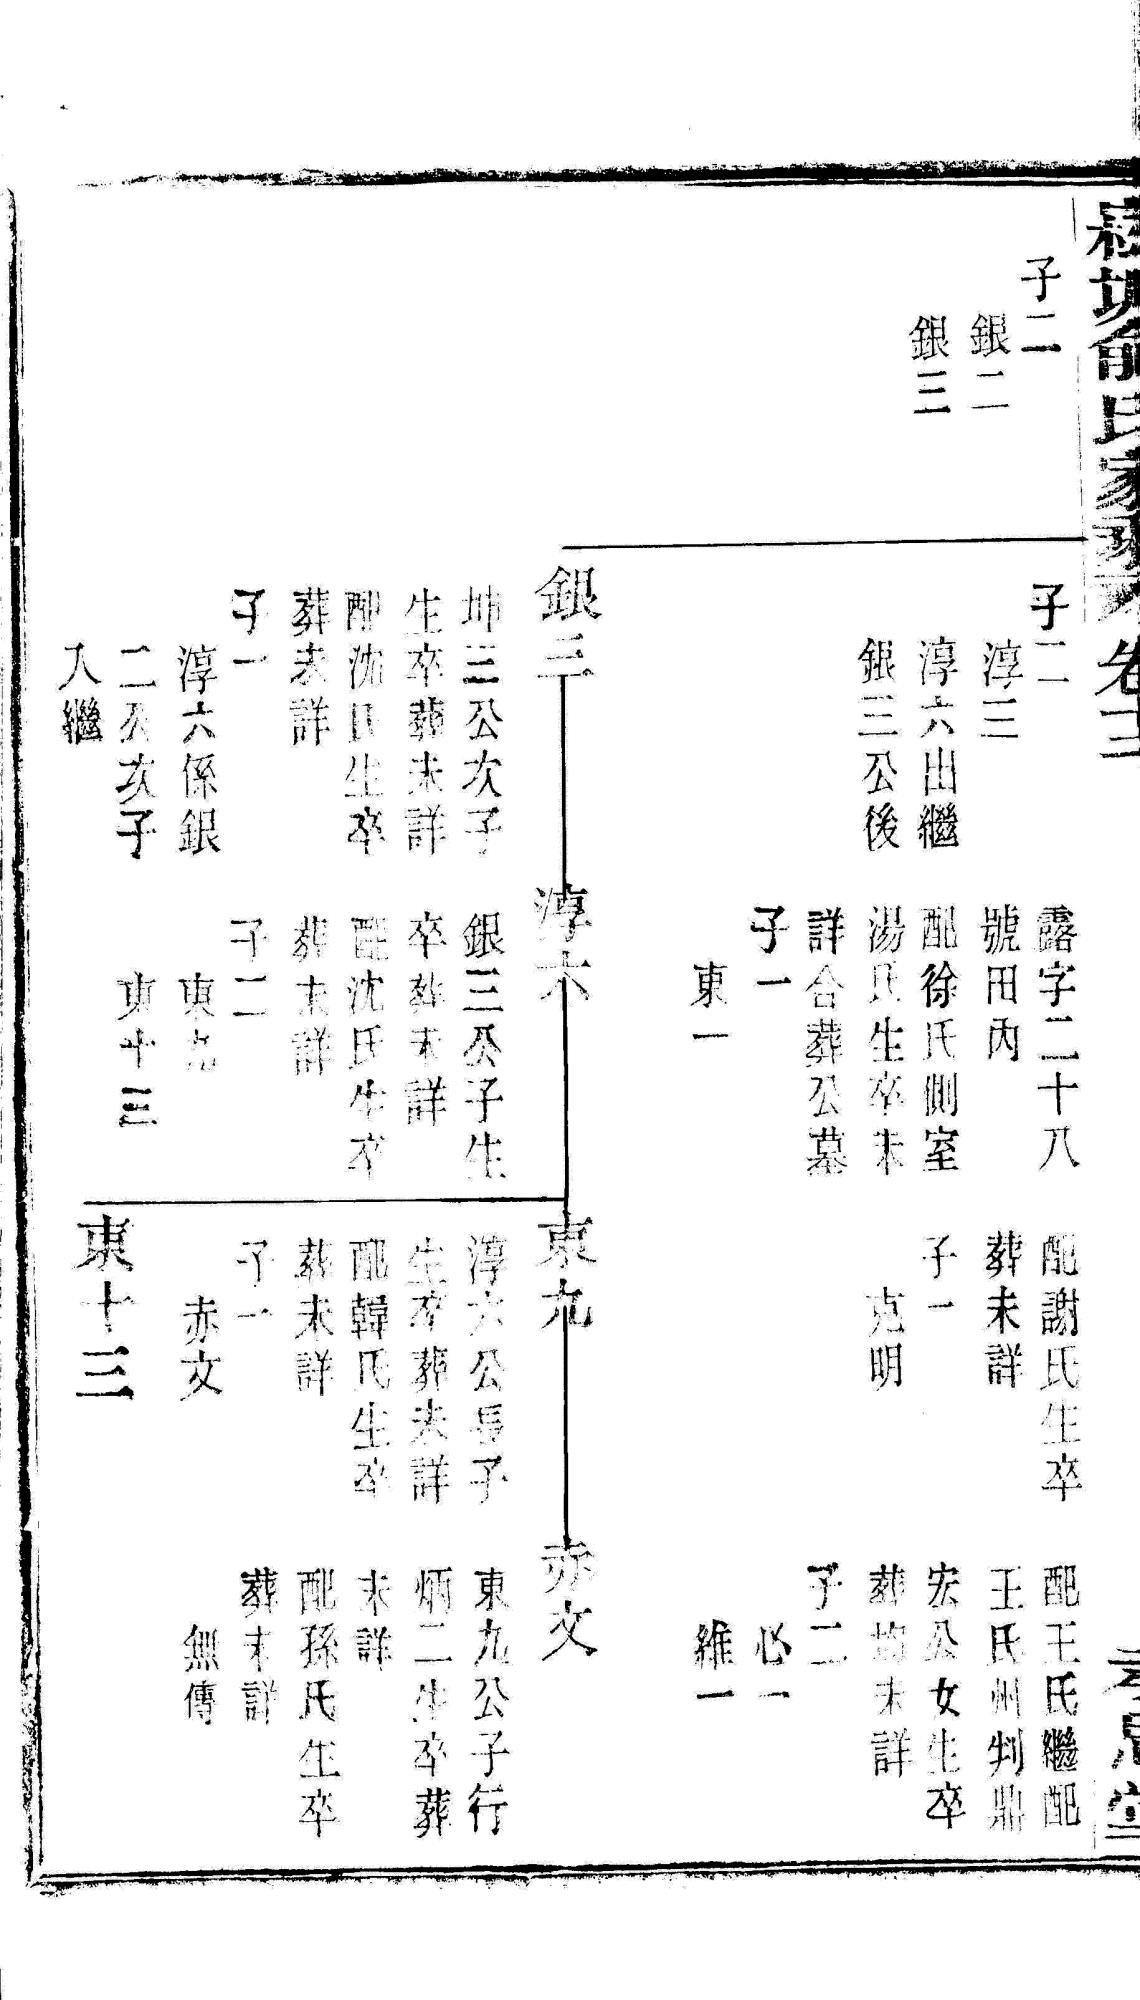 氏家乘
子二
銀二
銀三
子二
淳三
淳六出繼
銀三公後
露字二十八
號田內
配徐氏側室
湯氏生卒未
詳合葬公墓
子一
東一
配謝氏生卒
葬未詳
子一
克明
配王氏繼配
王氏州判鼎
宏公女生卒
葬均未詳
子二
心一
維一
銀三
坤三公次子
生卒葬未詳
配沈氏生卒
葬未詳
子一
淳六係銀
二公次子
入繼
淳六
銀三公子生
卒葬未詳
配沈氏生卒
葬未詳
子二
東九
東十三
東九
淳六公長子
生卒葬未詳
配韓氏生卒
葬未詳
子一
赤文
東十三
赤文
東九公子行
炳二生卒葬
未詳
配孫氏生卒
葬未詳
無傳